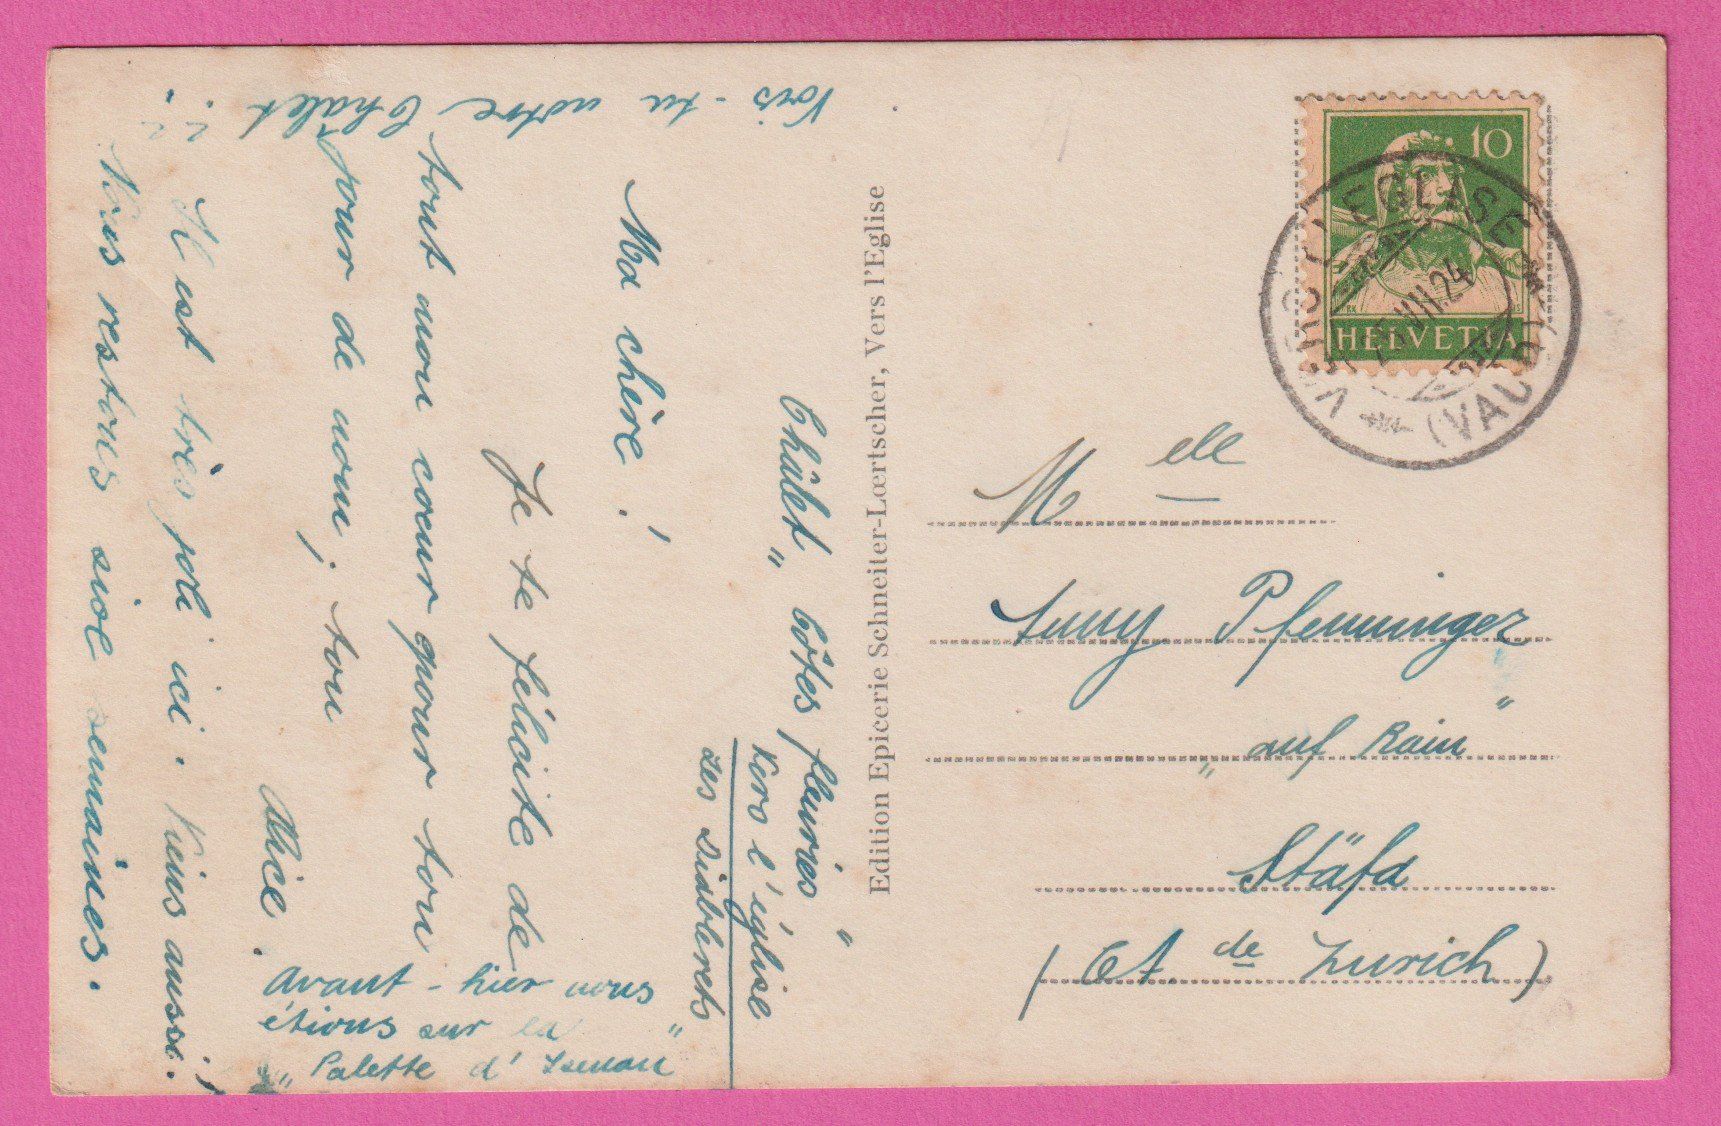 Vois-tu notre Châlet
Châlet „Côtes fleuries"
Vers l'église
Les Diablerets
Ma chère!
Je te félicite de
tout mon cœur pour ton
jour de nom; ton
Alice.
Il est très joli ici. Viens aussi!
Nous restons sise semaines.
Avant-hier nous
étions sur la
„Palette d'Isenau"
Edition Epicerie Schneiter-Lœrtscher, Vers l'Eglise
10
HELVETIA
VERS L'EGLISE
VIII.24
(VAUD)
Mdelle
Pfenninger
„auf Rain"
Stäfa
(Ct. de Zurich)